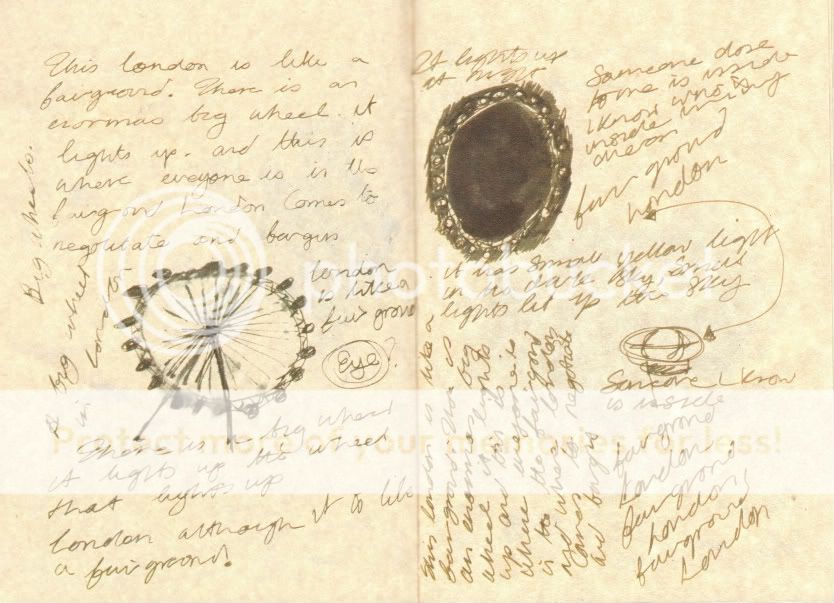 This London is like a
fairground. There is an
enormas big wheel. it
lights up. and this is
where everyone is in the
London Comes to
negotiate and
Big wheels.
A big wheel
in London
London
is like a
fair ground
Eye?
There is a big wheel
it lights up the wheel
that lights up
London although it to like
a fairground.
It lights up
at night
Someone close
to me is inside
I know who is
inside
fair ground
London
it has small yellow light
in the dark sky small
lights let up the sky
Someone I know
is inside
fairground
London
fairground
London
fairground
London
This London is like a
fairground there is
an enormas big
wheel it lights
up and this is
where everyone is
in the fairground
London
comes to negotiate
and
photobucket
Protect more of your memories for less!